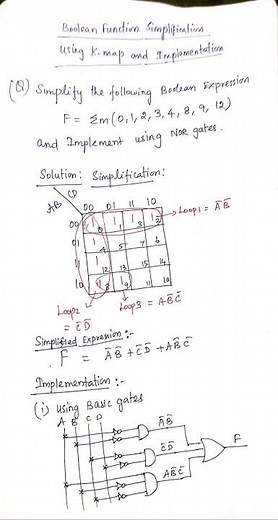 Boolean Function Simplification
Using K-map and Implementation
(Q) Simplify the following Boolean Expression
F = Σm(0, 1, 2, 3, 4, 8, 9, 12)
and Implement using NOR gates.
Solution: Simplification:
CD
AB
00 01 11 10
00 1 0 1 1 1 3 1 2
01 1 4 5 7 6
11 1 12 13 15 14
10 1 8 1 9 11 10
Loop1 = A̅B̅
Loop2 = C̅D̅
Loop3 = AB̅C̅
Simplified Expression :-
F = A̅B̅ + C̅D̅ + AB̅C̅
Implementation :-
(i) Using Basic gates
A B C D
A̅B̅
C̅D̅
AB̅C̅
F